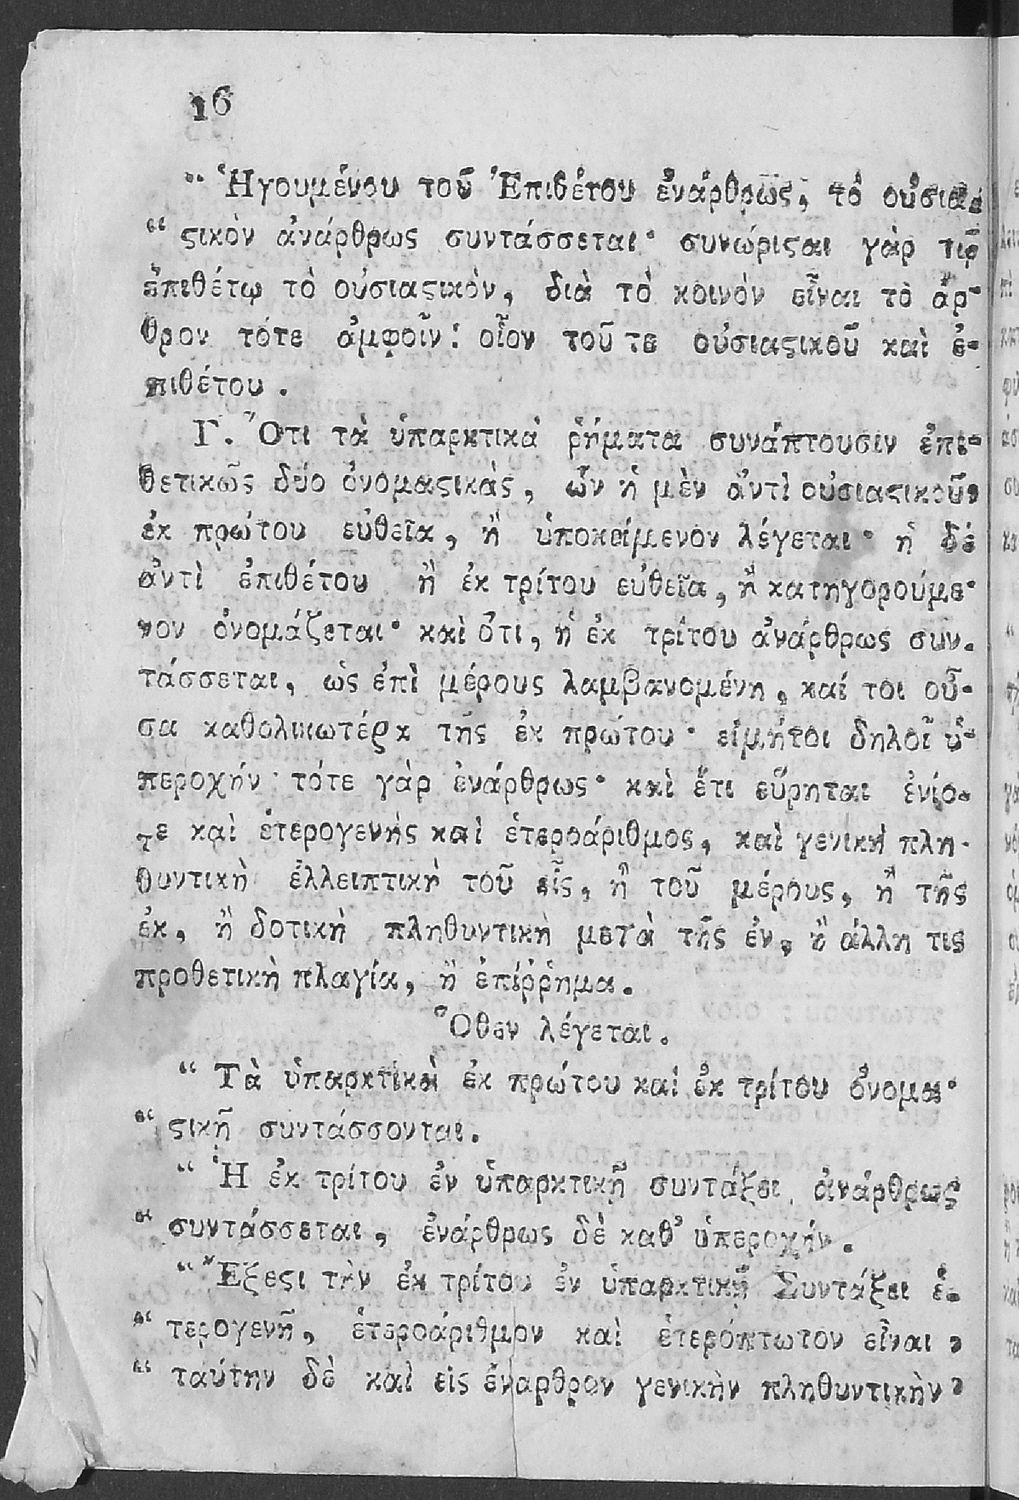 16
“ Ἡγουμένου τοῦ Ἐπιθέτου ἐνάρθρως, τὸ οὐσια-
“ ϛικὸν ἀνάρθρως συντάσσεται· συνώριϛαι γὰρ τῷ
ἐπιθέτῳ τὸ οὐσιαϛικὸν, διὰ τὸ κοινὸν εἶναι τὸ ἄρ-
θρον τότε ἀμφοῖν: οἷον τοῦ τε οὐσιαϛικοῦ καὶ ἐ-
πιθέτου.
Γ. Ὅτι τὰ ὑπαρκτικὰ ῥήματα συνάπτουσιν ἐπι-
θετικῶς δύο ὀνομαϛικὰς, ὧν ἡ μὲν ἀντὶ οὐσιαϛικοῦ,
ἐκ πρώτου εὐθεῖα, ἢ ὑποκείμενον λέγεται· ἡ δὲ
ἀντὶ ἐπιθέτου ἢ ἐκ τρίτου εὐθεῖα, ἢ κατηγορούμε-
νον ὀνομάζεται· καὶ ὅτι, ἡ ἐκ τρίτου ἀνάρθρως συν-
τάσσεται, ὡς ἐπὶ μέρους λαμβανομένη, καί τοι οὖ-
σα καθολικωτέρα τῆς ἐκ πρώτου· εἰμήτοι δηλοῖ ὑ-
περοχήν· τότε γὰρ ἐνάρθρως· καὶ ἔτι εὕρηται ἐνίο-
τε καὶ ἑτερογενὴς καὶ ἑτεροάριθμος, καὶ γενικὴ πλη-
θυντικὴ ἐλλειπτικὴ τοῦ εἷς, ἢ τοῦ μέρους, ἢ τῆς
ἐκ, ἢ δοτικὴ πληθυντικὴ μετὰ τῆς ἐν, ἢ ἄλλη τις
προθετικὴ πλαγία, ἢ ἐπίῤῥημα.
Ὅθεν λέγεται.
“ Τὰ ὑπαρκτικὰ ἐκ πρώτου καὶ ἐκ τρίτου ὀνομα-
“ ϛικῇ συντάσσονται.
“ Ἡ ἐκ τρίτου ἐν ὑπαρκτικῇ συντάξει ἀνάρθρως
“ συντάσσεται, ἐνάρθρως δὲ καθ’ ὑπεροχήν.
“ Ἔξεϛι τὴν ἐκ τρίτου ἐν ὑπαρκτικῇ Συντάξει ἑ-
“ τερογενῆ, ἑτεροάριθμον καὶ ἑτερόπτωτον εἶναι,
“ ταύτην δὲ καὶ εἰς ἔναρθρον γενικὴν πληθυντικὴν,